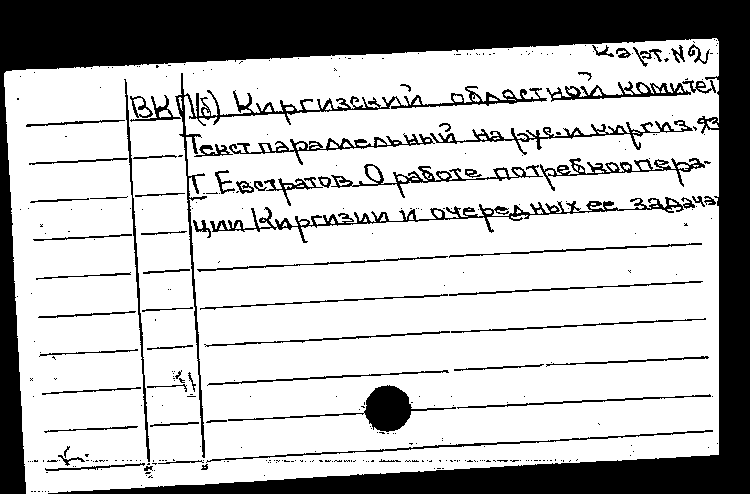 Карт. №2
ВКП(б) Киргизский областной комитет
Текст параллельный на рус. и киргиз. яз
Т Евстратов. О работе потребкоопера-
ции Киргизии и очередных ее задачах